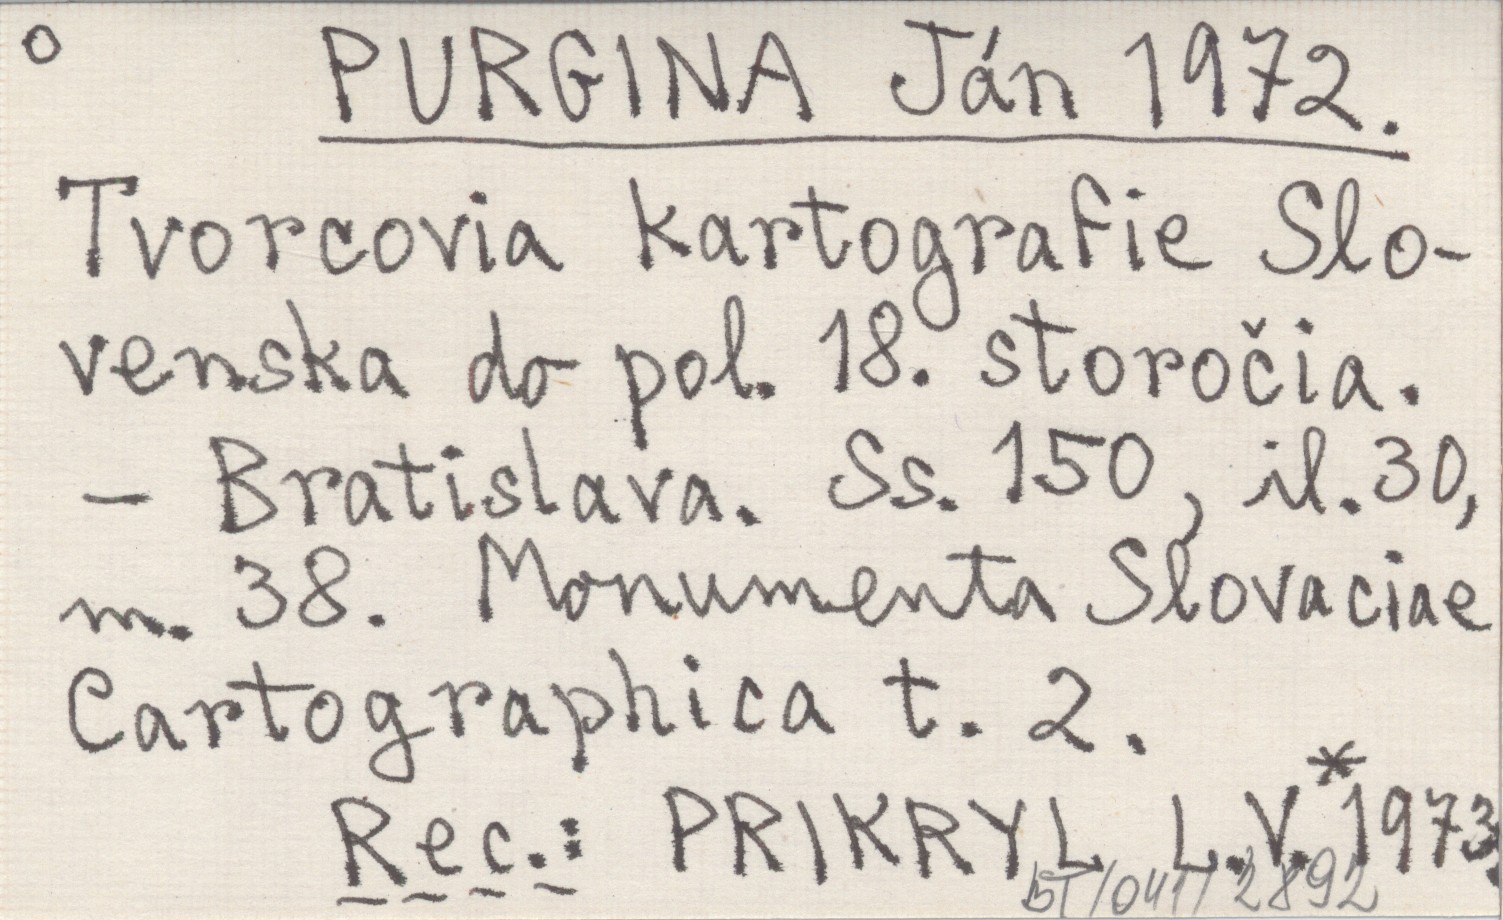 o PURGINA Ján 1972.
Tvorcovia kartografie Slo-
venska do pol. 18. storočia.
- Bratislava. Ss. 150, il. 30,
m. 38. Monumenta Slovaciae
Cartographica t. 2.
Rec.: PRIKRYL L.V.* 1973.
BT/041/2892